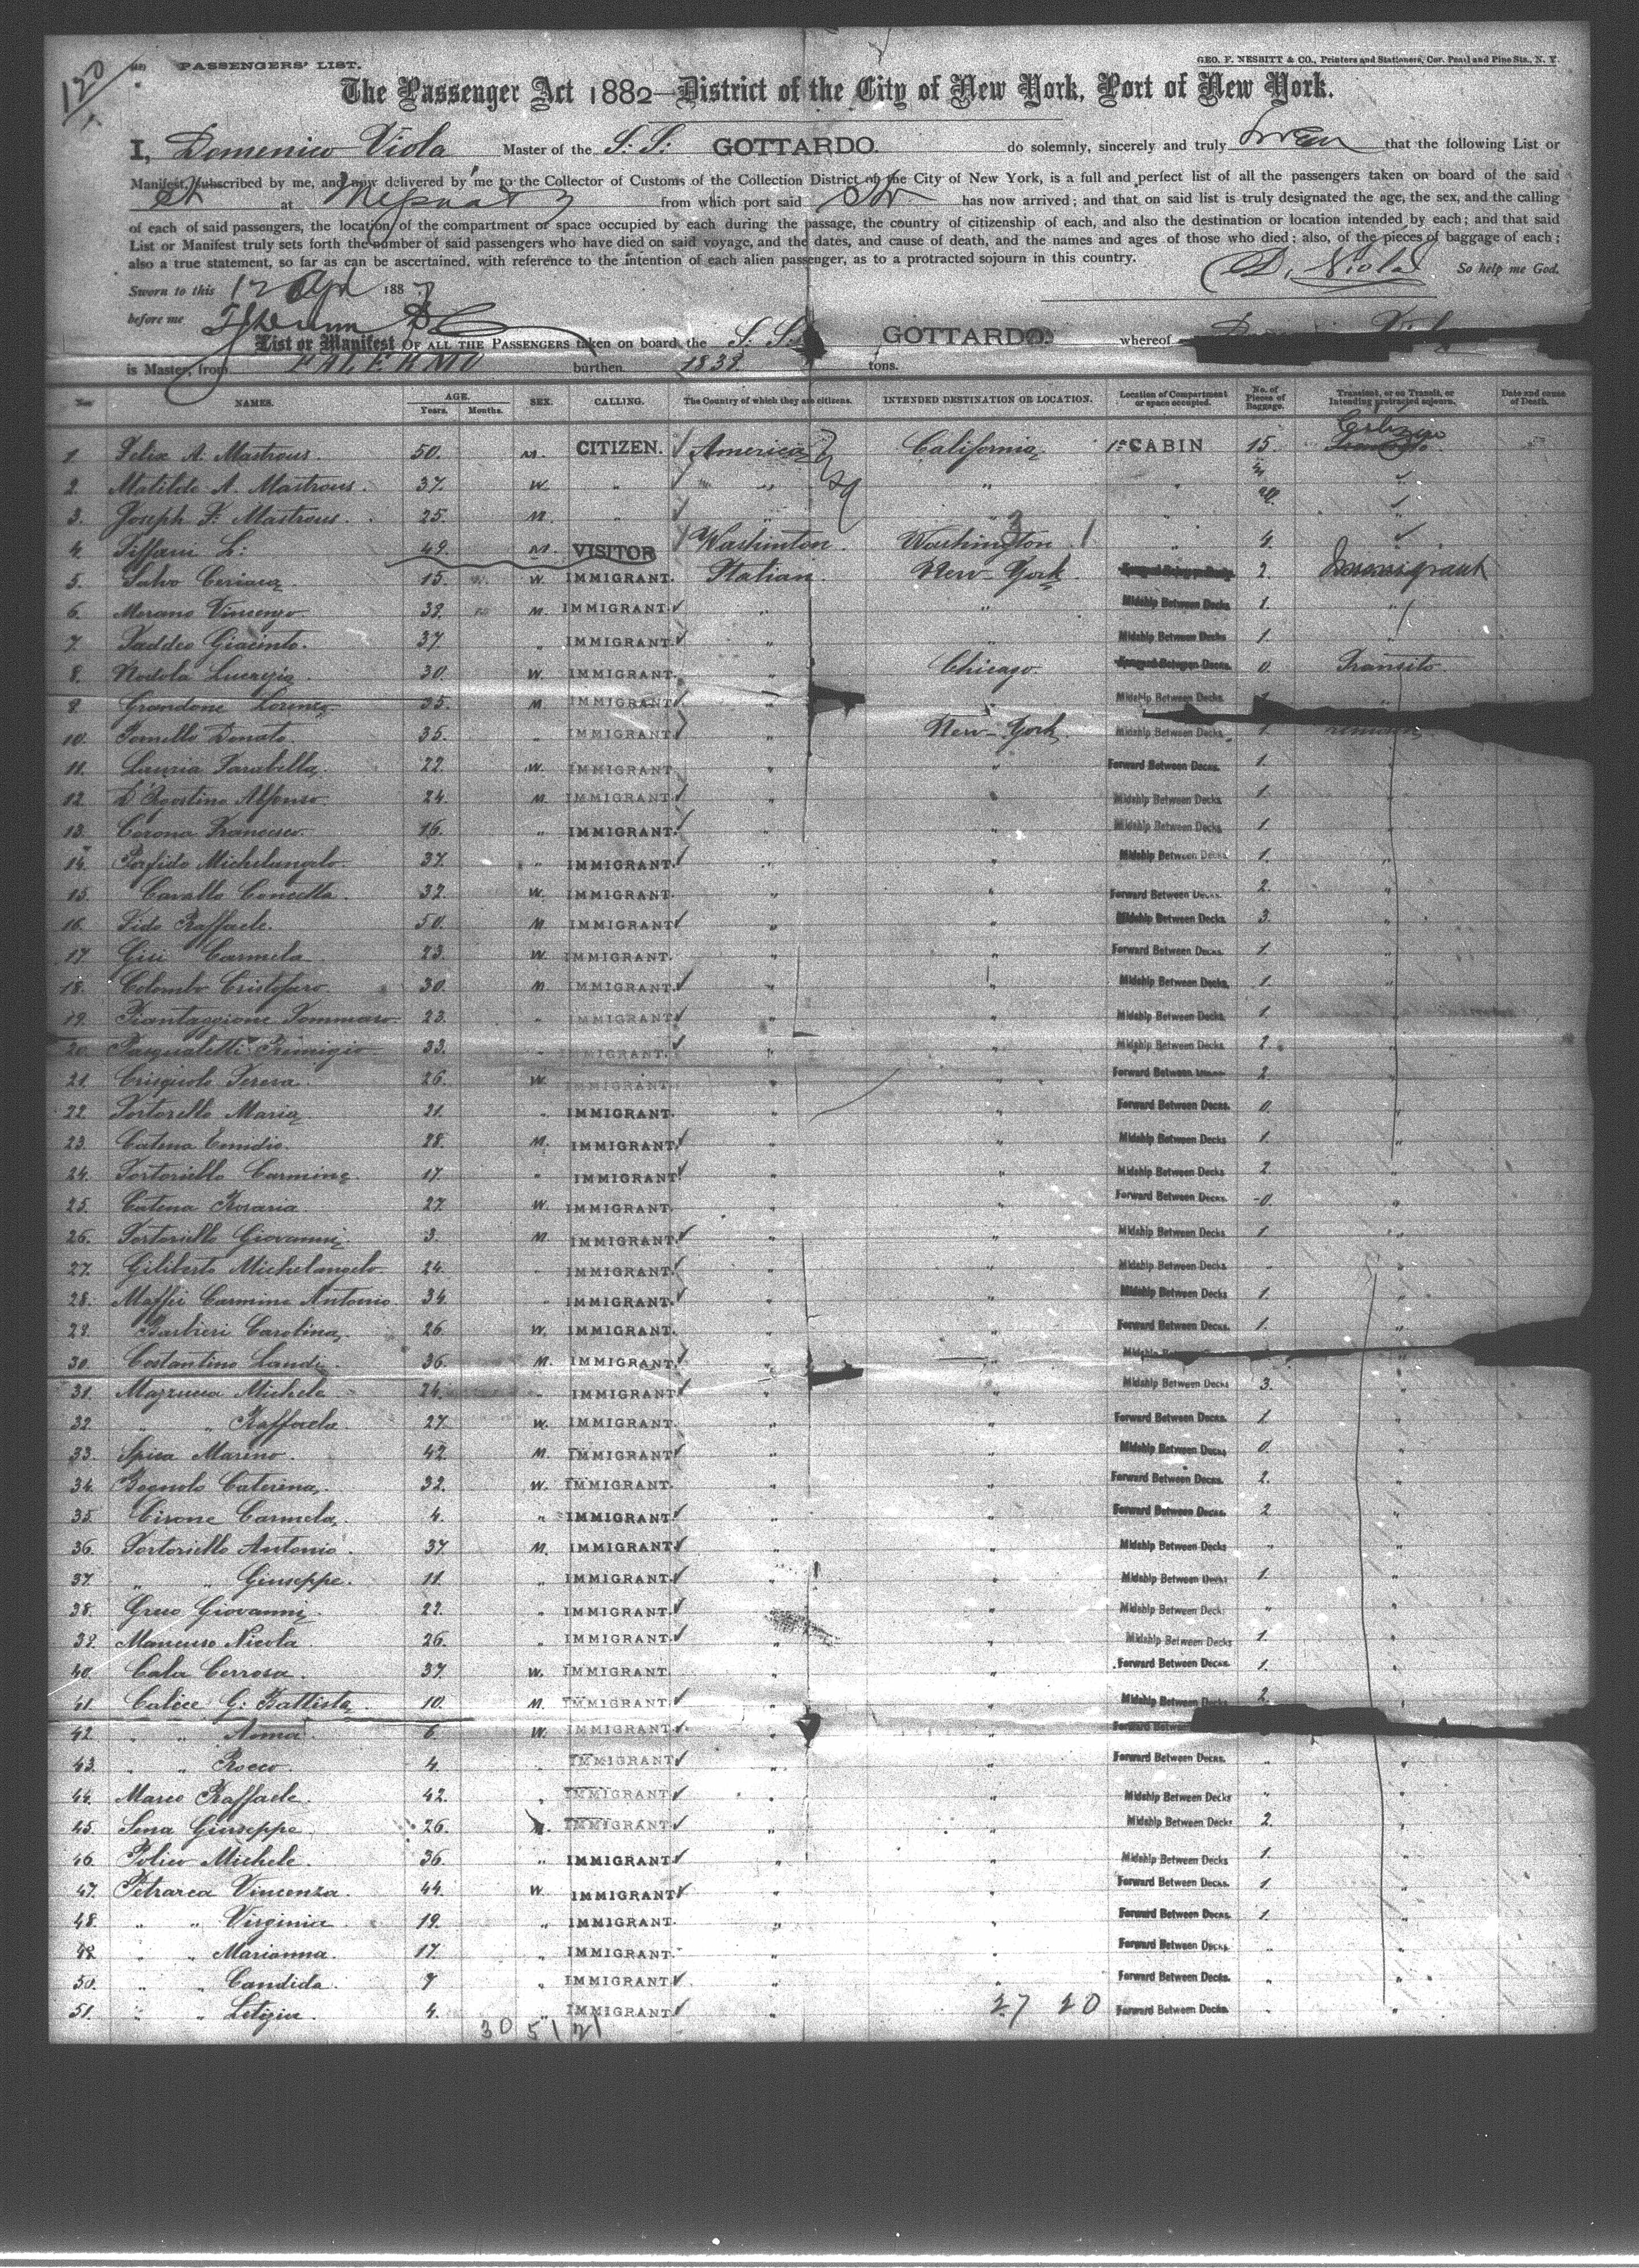 120
PASSENGERS' LIST.
GEO. F. NESBITT & CO., Printers and Stationers, Cor. Pearl and Pine Sts., N. Y.
The Passenger Act 1882—District of the City of New York, Port of New York.
I, Domenico Viola Master of the S. S. GOTTARDO. do solemnly, sincerely and truly swear that the following List or
Manifest, subscribed by me, and now delivered by me to the Collector of Customs of the Collection District of the City of New York, is a full and perfect list of all the passengers taken on board of the said
at from which port said has now arrived; and that on said list is truly designated the age, the sex, and the calling
of each of said passengers, the location of the compartment or space occupied by each during the passage, the country of citizenship of each, and also the destination or location intended by each; and that said
List or Manifest truly sets forth the number of said passengers who have died on said voyage, and the dates, and cause of death, and the names and ages of those who died; also, of the pieces of baggage of each;
also a true statement, so far as can be ascertained, with reference to the intention of each alien passenger, as to a protracted sojourn in this country.
D. Viola So help me God.
Sworn to this 12 Apl 1887
before me
List or Manifest OF ALL THE PASSENGERS taken on board the S. S. GOTTARDO. whereof
is Master, from PALERMO burthen 1838. tons.
Nos NAMES. AGE. Years. Months. SEX. CALLING. The Country of which they are citizens. INTENDED DESTINATION OR LOCATION. Location of Compartment or space occupied. No. of Pieces of Baggage. Transient, or on Transit, or Intending protracted sojourn. Date and cause of Death.
1. Felix A. Mastrous. 50. M. CITIZEN. America California 1a CABIN 15.
2. Matilde A. Mastrous. 37. W. " " " " "
3. Joseph F. Mastrous. 25. M. " " "
4. Tiffani L: 49. M. VISITOR Washinton. Washington. " 4.
5. Salvo 15. W. IMMIGRANT. Italian. New-York. 2. Immigrant
6. Morano Vincenzo. 38. M. IMMIGRANT. " " Midship Between Decks 1. "
7. Taddeo Giacinto. 37. " IMMIGRANT. " " Midship Between Decks 1. "
8. Nodola Lucrezia. 30. W. IMMIGRANT. " Chicago. 0. Transito.
9. Grandone Lorenzo 35. M. IMMIGRANT " " Midship Between Decks 1. "
10. Donato 35. " IMMIGRANT " New-York. Midship Between Decks 1.
11. Farabella. 22. W. IMMIGRANT " " Forward Between Decks. 1. "
12. D'Agostino Alfonso. 24. M. IMMIGRANT " " Midship Between Decks 1. "
13. Corona Francesco. 16. " IMMIGRANT. " " Midship Between Decks 1. "
14. Porfido Michelangelo. 37. " IMMIGRANT. " " Midship Between Decks 1. "
15. Cavallo Concetta. 32. W. IMMIGRANT. " " Forward Between Decks. 2. "
16. Fido Raffaele. 50. M. IMMIGRANT " " Midship Between Decks 3. "
17. Carmela 23. W. IMMIGRANT. " " Forward Between Decks. 1. "
18. Colombo Cristofaro. 30. M. IMMIGRANT " " Midship Between Decks. 1. "
19. Piantaggione Tommaso. 23. " IMMIGRANT " " Midship Between Decks. 1. "
20. Pasqualetti Remigio 33. " IMMIGRANT. " " Midship Between Decks 2. "
21. Teresa. 26. W. IMMIGRANT " " Forward Between Decks 2. "
22. Tortorello Maria. 21. " IMMIGRANT. " " Forward Between Decks. 0. "
23. Catena Emidio. 28. M. IMMIGRANT " " Midship Between Decks 1. "
24. Tortoriello Carmine. 17. " IMMIGRANT " " Midship Between Decks 2. "
25. Catena Rosaria. 27. W. IMMIGRANT. " " Forward Between Decks. -0. "
26. Tortoriello Giovanni. 3. M. IMMIGRANT. " " Midship Between Decks 1. "
27. Giliberto Michelangelo. 24. " IMMIGRANT. " " Midship Between Decks " "
28. Maffei Carmine Antonio. 34. " IMMIGRANT. " " Midship Between Decks 1. "
29. Barbieri Carolina. 26. W. IMMIGRANT. " " Forward Between Decks. 1. "
30. Costantino Landi. 36. M. IMMIGRANT. " " Midship "
31. Mazzucca Michele 24. " IMMIGRANT " " Midship Between Decks 3. "
32. " " Raffaela 27. W. IMMIGRANT. " " Forward Between Decks. 1. "
33. Spica Marino. 42. M. IMMIGRANT " " Midship Between Decks 0. "
34. Bognolo Caterina. 32. W. IMMIGRANT " " Forward Between Decks. 2. "
35. Cirone Carmela. 4. " IMMIGRANT. " " Forward Between Decks. 2 "
36. Tortoriello Antonio. 37. M. IMMIGRANT " " Midship Between Decks " "
37. " " Giuseppe. 11. " IMMIGRANT. " " Midship Between Decks 1. "
38. Greco Giovanni. 22. " IMMIGRANT. " " Midship Between Decks " "
39. Mancuso Nicola. 26. " IMMIGRANT. " " Midship Between Decks 1. "
40. Cala Cerrosa. 37. W. IMMIGRANT. " " Forward Between Decks. 1. "
41. Calice G: Battista 10. M. IMMIGRANT. " " Midship Between Decks 2. "
42. " " Anna 6. W. IMMIGRANT " " Forward Between "
43. " " Rocco. 4. " IMMIGRANT " " Forward Between Decks. " "
44. Marco Raffaele. 42. " IMMIGRANT " " Midship Between Decks " "
45. Sena Giuseppe 26. M. IMMIGRANT " " Midship Between Decks 2. "
46. Polico Michele. 36. " IMMIGRANT. " " Midship Between Decks 1. "
47. Petrarca Vincenza. 44. W. IMMIGRANT " " Forward Between Decks. 1. "
48. " " Virginia 19. " IMMIGRANT. " " Forward Between Decks. 1. "
49. " " Marianna. 17. " IMMIGRANT. " " Forward Between Decks. " "
50. " " Candida. 9 " IMMIGRANT. " " Forward Between Decks. " "
51. " " Letizia. 4. " IMMIGRANT. " Forward Between Decks. " "
27 20
30 51 21